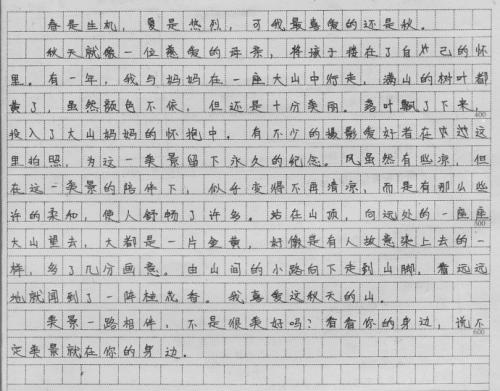 春是生机，夏是热烈，可我最喜爱的还是秋。
秋天就像一位慈爱的母亲，将孩子搂在了自己的怀
里。有一年，我与妈妈在一座大山中行走，满山的树叶都
黄了，虽然颜色不依，但还是十分美丽。落叶飘了下来，
400
投入了大山妈妈的怀抱中。有不少的摄影爱好者在这
里拍照，为这一美景留下永久的纪念。风虽然有些凉，但
在这一美景的陪伴下，似乎变得不再清凉，而是有那么些
许的柔和，使人舒畅了许多。站在山顶，向远处的一座座
500
大山望去，大都是一片金黄，好像是有人故意染上去的一
样，多了几分画意。由山间的小路向下走到山脚，看远远
地就闻到了一阵桂花香。我喜爱这秋天的山。
美景一路相伴，不是很美好吗？看看你的身边，说不
600
定美景就在你的身边。